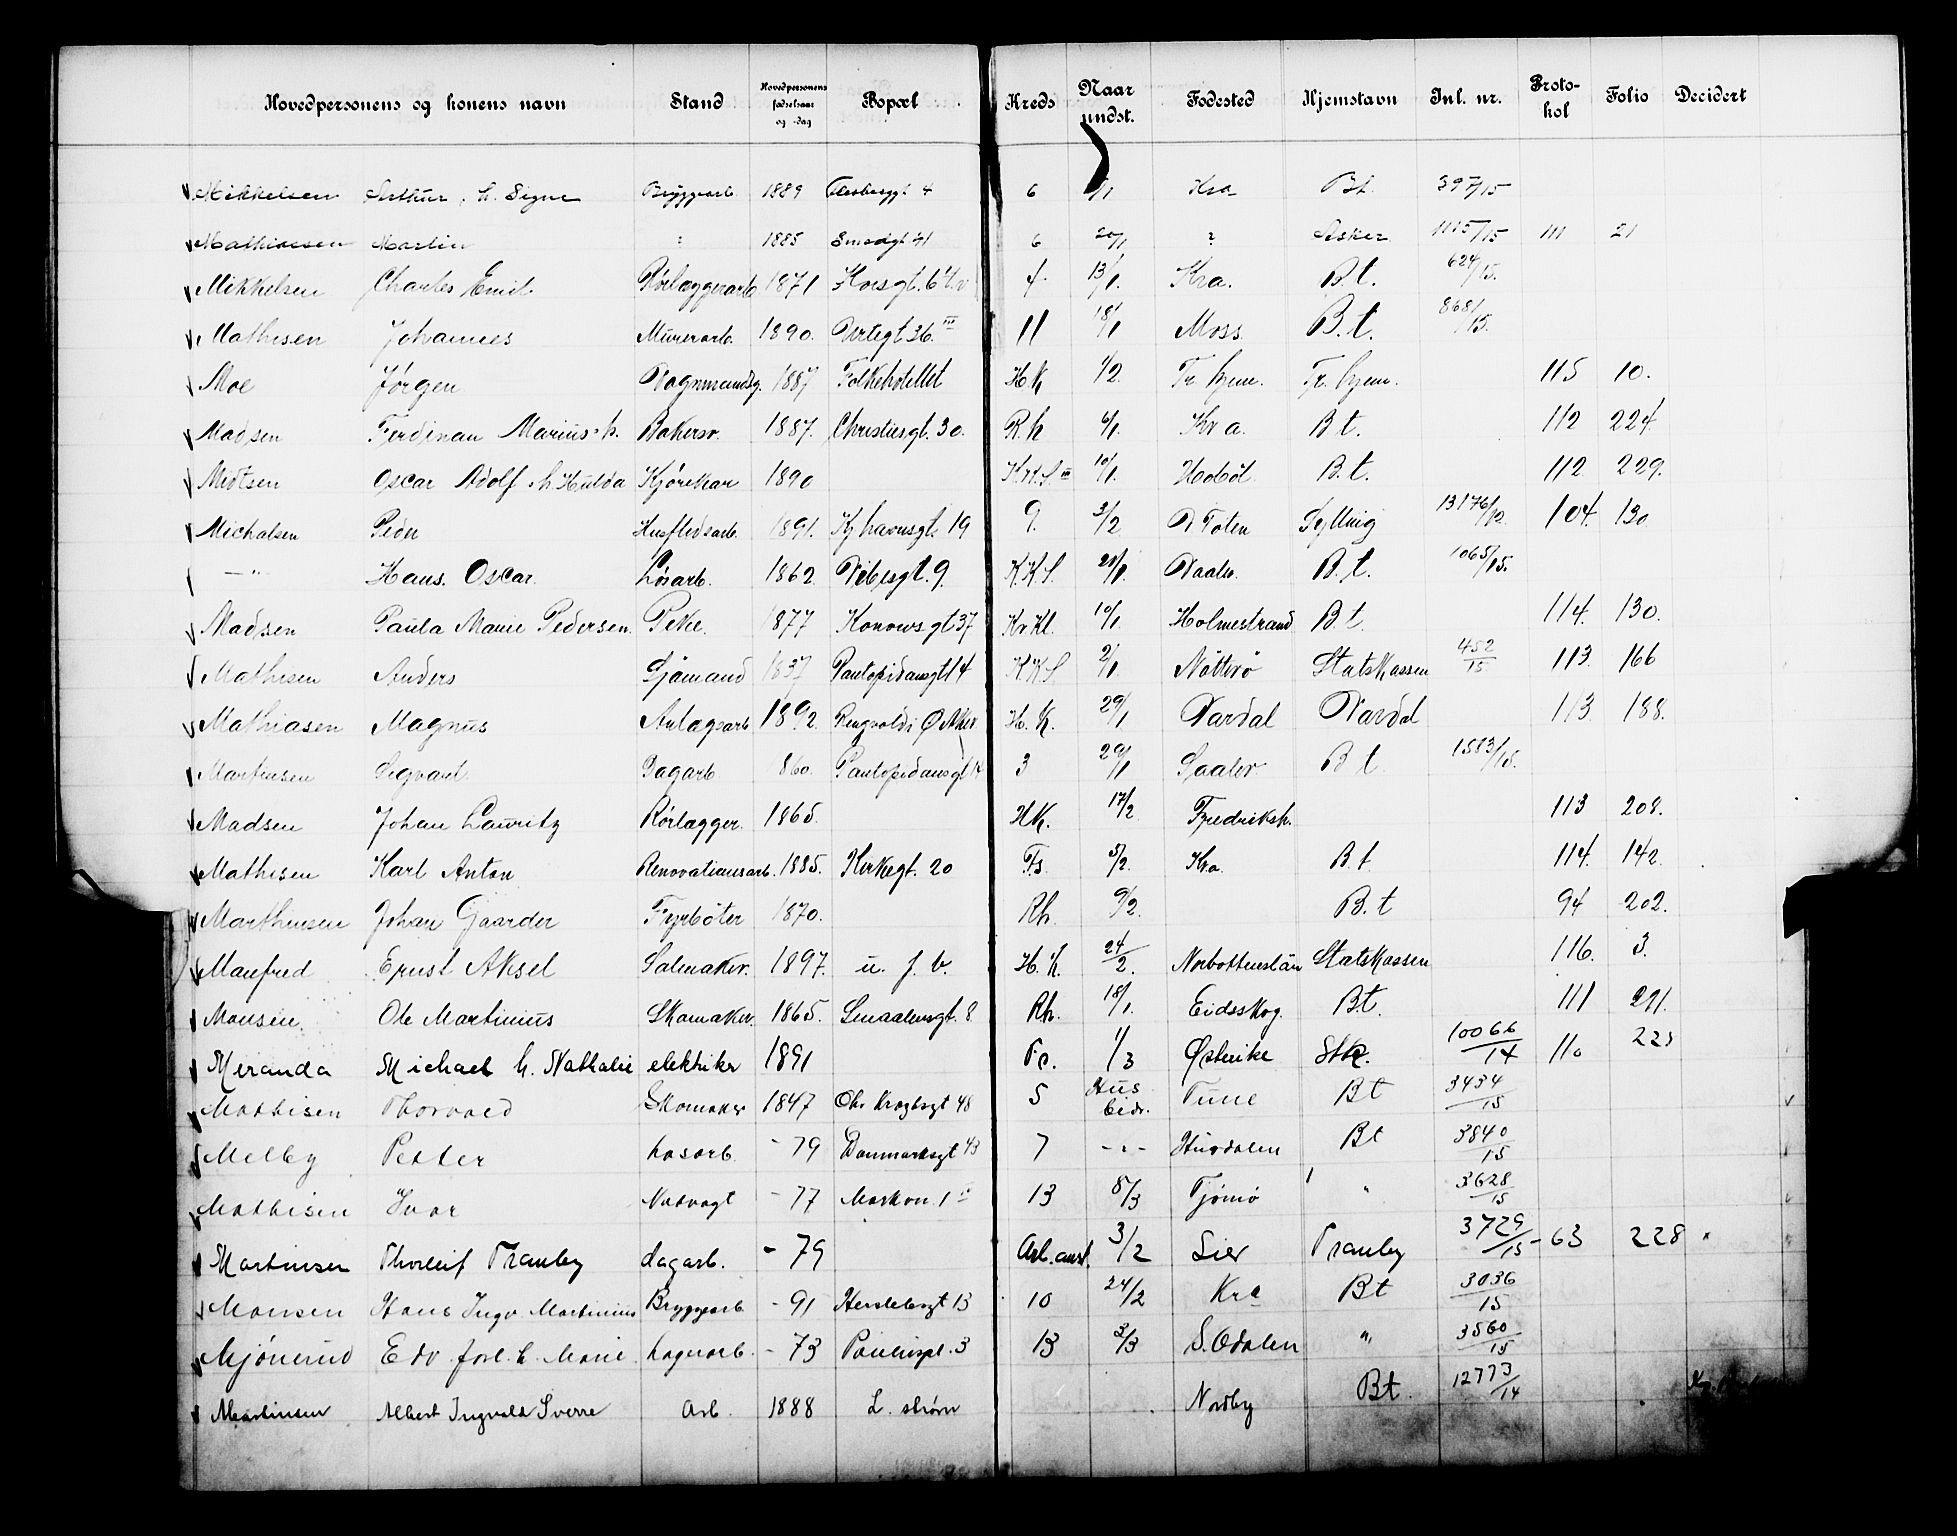 Hovedpersonens og konens navn Stand Hovedpersonens fødselsaar og -dag Bopæl Kreds Naar undst. Fødested Hjemstavn Inl. nr. Proto-kol Folio Decidert
Mikkelsen Arthur, h. Signe Bryggearb. 1889 4 6 Kra Bt. 397/15
Mathiassen Martin 1885 Smedgt 41 6 20/1 Asker 1115/15 111 21
Mikkelsen Charles Emil Rörlæggerarb 1871 13/1 Kra. B.t. 624/15.
Mathisen Johannes Murerarb. 1890. Urtegt 36 III 11 18/1 Moss B.t. 868/15.
Moe Jørgen Vognmandsg. 1887 Folkehotellet H.K 1/2 Tr. hjem. Tr. hjem. 115 10.
Madsen Ferdinan Marius h. Bakersv. 1887. Christiesgt. 30. R.h 6/1 Kra. B t. 112 224
Midtsen Oscar Adolf h Hulda Kjörekar 1890 10/1. Hobøl B.t. 112. 229.
Michalsen Peder Husflidsarb. 1891. Kjhavnsgt. 19 9. 3/2 V. Toten Sylling 13176/12. 104. 130
— " — Hans. Oscar. Lösarb. 1862 Vibesgt. 9. K.K.S. 20/1. Vaaler. B.t. 1065/15.
Madsen Paula Marie Pedersen. Pike. 1877 Konowsgt 37 Kr Kl. 10/1. Holmestrand B.t. 114. 130.
Mathisen Anders Sjömand 1837 Pantopidansgt 4 K.K.S 2/1. Nötterö Statskassen 452/15 113. 166
Mathiasen Magnus Anlagsarb 1892. Ringvold i Ø Aker H.K. 29/1 Vardal Vardal 113 188.
Martinsen Sigvart Dagarb 1860. Pantopidansgt 14 3 29/1 Saaler B t. 1583/15.
Madsen Johan Lauritz Rörlægger. 1865. H.K. 17/2. Fredriksh. 113 208.
Mathisen Karl Anton Renovationsarb. 1885. Kirkegt. 20 Fs. 5/2. Kra. B.t 114. 142.
Marthinsen Johan Gaarder Fyrböter 1870. Rh. 9/2. B.t 94 202.
Manfred Ernst Aksel Salmaker. 1897. u. f. b. H.K. 24/2. Norbottenslän Statskassen 116. 3.
Monsen Ole Martinius Skomaker. 1865. Smaalensgt. 8 Rh. 18/1. Eidsskog. B.t. 111 291.
Meranda Michael h. Nathalie elektriker 1891 1/3 Østerike Stk. 10066/14 110
Mathisen Thorvald Skomaker 1847 Chr Kroghsgt 48 5 Hus bidr. Tune Bt 3434/15
Melby Petter Løsarb. - 79 Danmarksgt 43 7 - " - Hurdalen Bt 3840/15
Mathisen Ivar Natvagt - 77 13 8/3 Tjömö " 3628/15
Martinsen Thorleif Tranby dagarb. - 79 Arb. anst. 3/2 Lier Tranby 3729/15 - 63 228
Monsen Hans Ingv. Martinius Bryggearb - 91 Herslebsgt 13 10 24/2 Kra Bt 3036/15
Mjönerud Edv. forl. h. Marie Lagerarb. - 73 Paulinspl. 3 13 3/3 S. Odalen " 3560/15
Martinsen Albert Ingvald Sverre Arb. 1888 L. strøm Nordby Bt. 12773/14